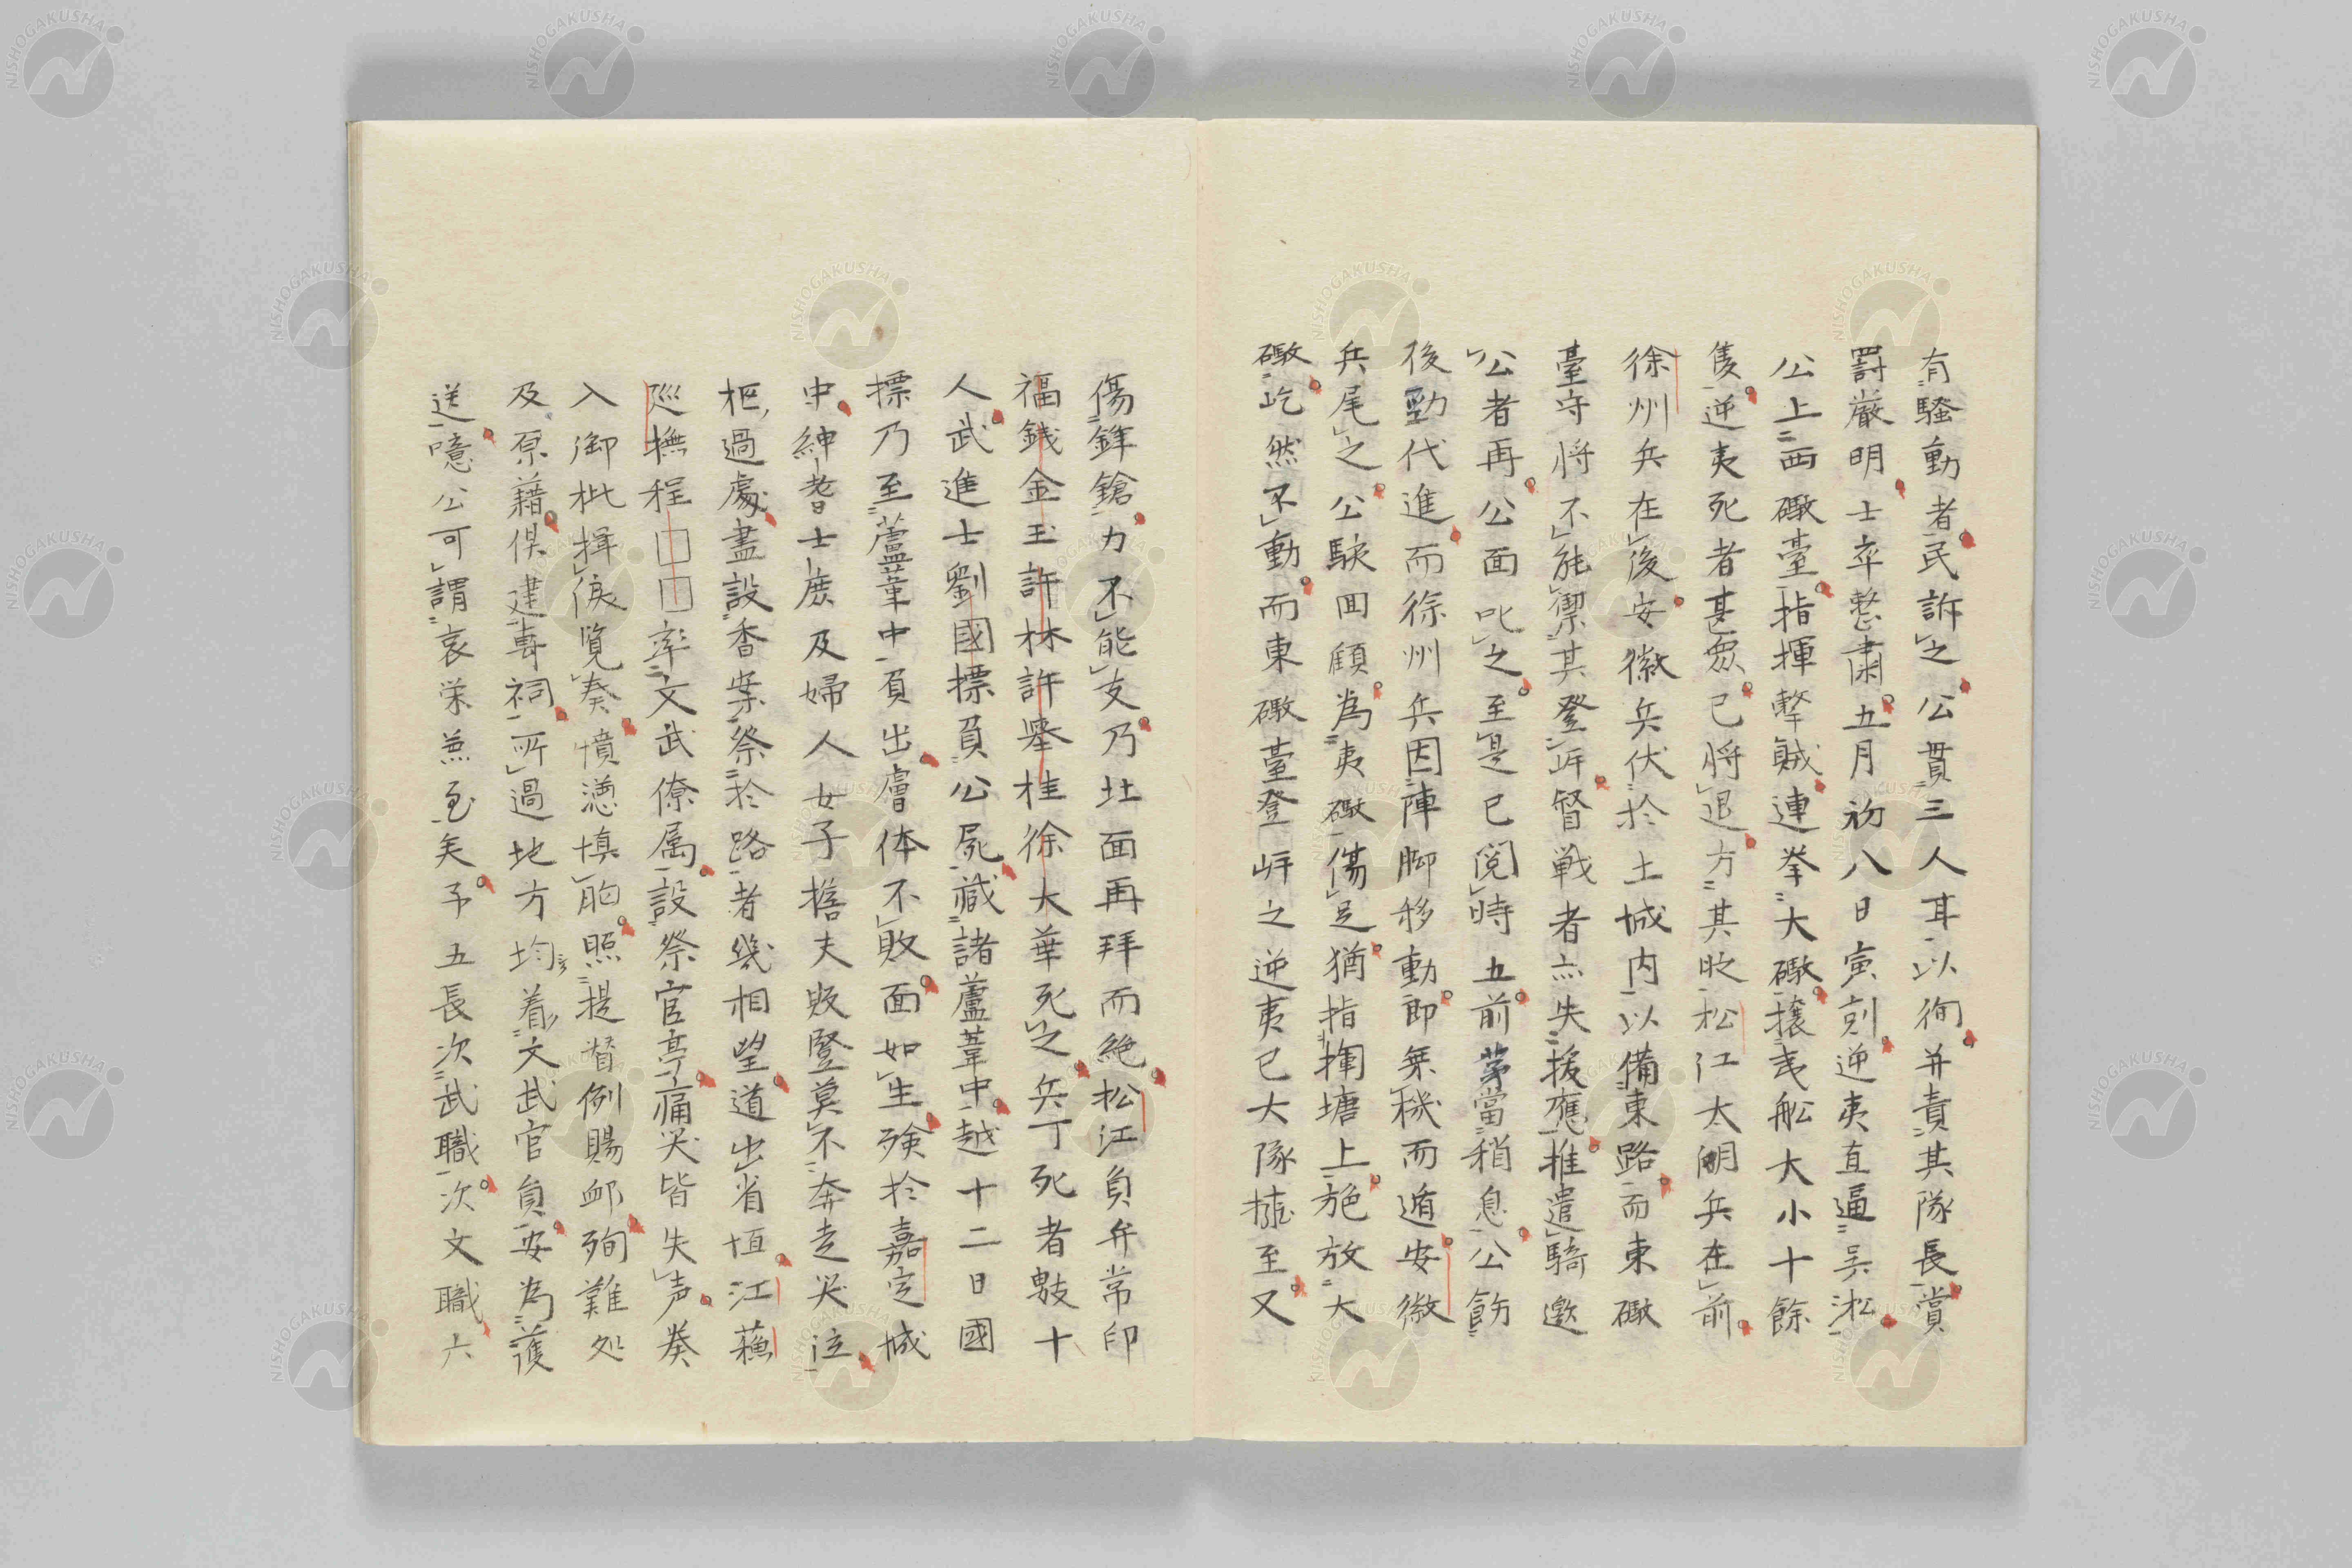 有騷動者民訴之公貫三人耳以徇并責其隊長賞
罰嚴明士卒整肅五月初八日寅刻逆夷直逼吴淞
公上西礮臺指揮擊賊連挙大礮擾夷舩大小十餘
隻逆夷死者甚衆已将退方其敗松江太湖兵在前
徐州兵在後安徽兵伏於土城内以備東路而東礮
臺守将不能禦其登岸督戦者亦失援應推遣騎邀
公者再公面叱之至是已閲時五前茅當稍息公飭
後勁代進而徐州兵因陣脚移動即乗機而遁安徽
兵尾之公駛回顧為夷礮傷足猶指揮塘上施放大
礮屹然不動而東礮臺登岸之逆夷已大隊擁至又
傷鉾鎗力不能支乃北面再拜而絶松江負弁常印
福銭金玉許林許舉桂徐大華死之兵丁死者數十
人武進士劉國摽負公屍藏諸蘆葦中越十二日國
摽乃至蘆葦中負出膚体不敗面如生殮於嘉定城
中紳耆士庶及婦人女子擔夫販豎莫不奔走哭泣
柩過處盡設香案祭於路者幾相望道出省垣江蘓
廵撫程□□率文武僚属設祭官亭痛哭皆失声奏
入御枇揮涙覧奏憤懣填胷照提督例賜卹殉難処
及原籍倶建専祠所過地方均着文武官員妥為護
送噫公可謂哀栄兼至矣予五長次武職次文職六